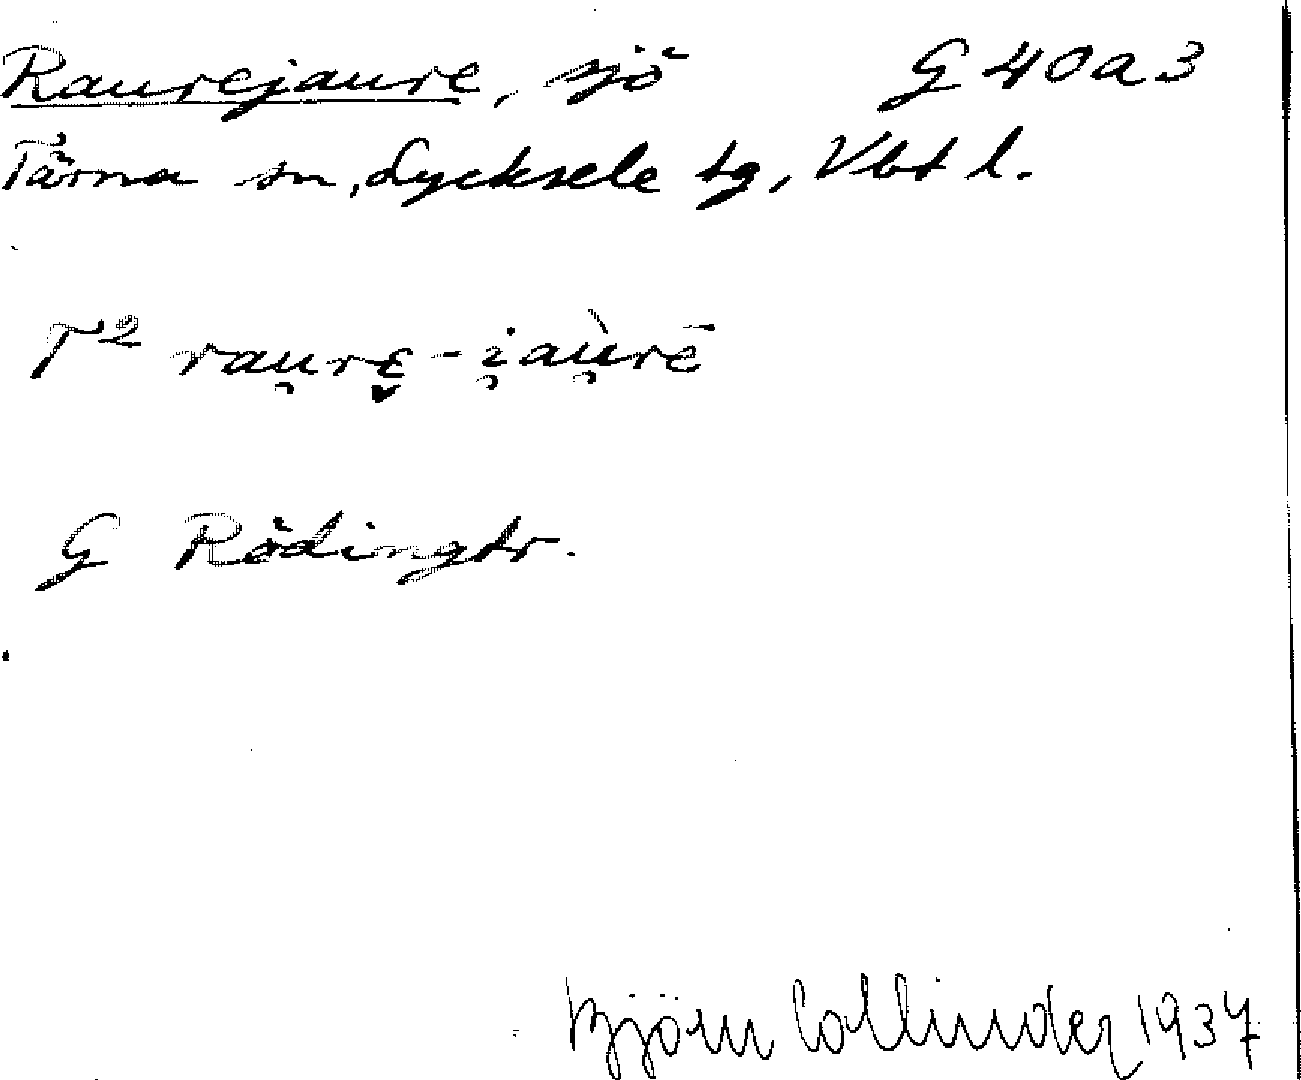 Raurejaure, sjö G 40a3
Tärna sn, Lycksele tg, Vbt l.
T² rau̯rε̮-i̯aù̯rē
G Rödingtr.
Björn Collinder 1937